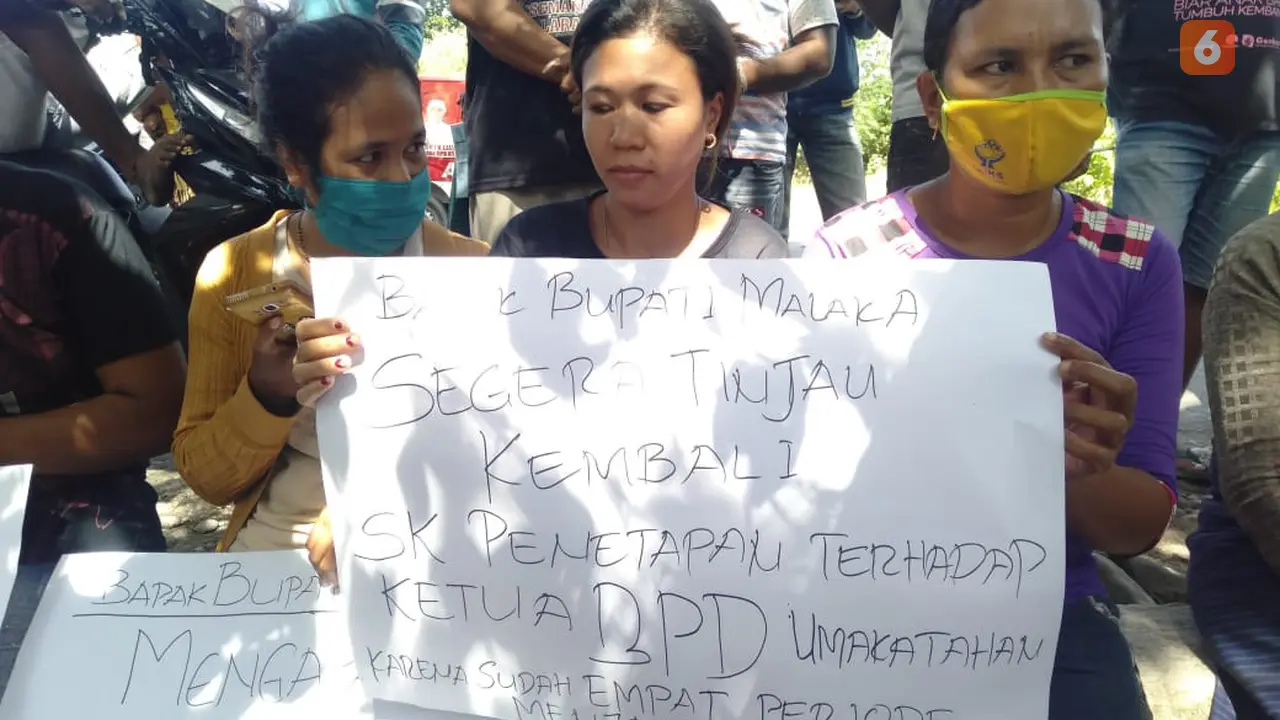 BIAR ANAK
TUMBUH KEMBAN
6
BUPATI MALAKA
SEGERA TINJAU
KEMBALI
SK PENETAPAN TERHADAP
KETUA BPD UMAKATAHAN
KARENA SUDAH EMPAT PERIODE
BAPAK BUPA
MENGA